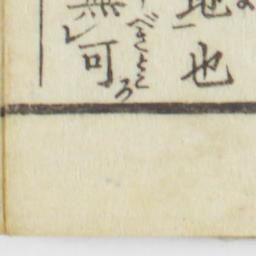 地一也
無レ可べきところ